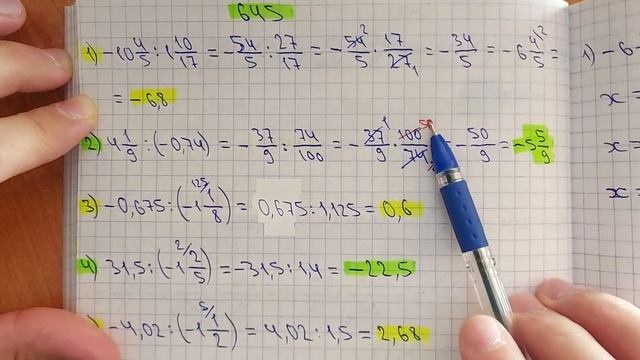 645
1) -10 4/5 : 1 10/17 = -54/5 : 27/17 = -54²/5 · 17/27₁ = -34/5 = -6 4²/5 =
= -6,8
2) 4 1/9 : (-0,74) = -37/9 : 74/100 = -37¹/9 · 100⁵⁰/74 = -50/9 = -5 5/9
3) -0,675 : (-1 ¹²⁵/1/8) = 0,675 : 1,125 = 0,6
4) 31,5 : (-1 ²/2/5) = -31,5 : 1,4 = -22,5
-4,02 : (-1 ⁵/1/2) = 4,02 : 1,5 = 2,68
1) -6
x =
x =
x =